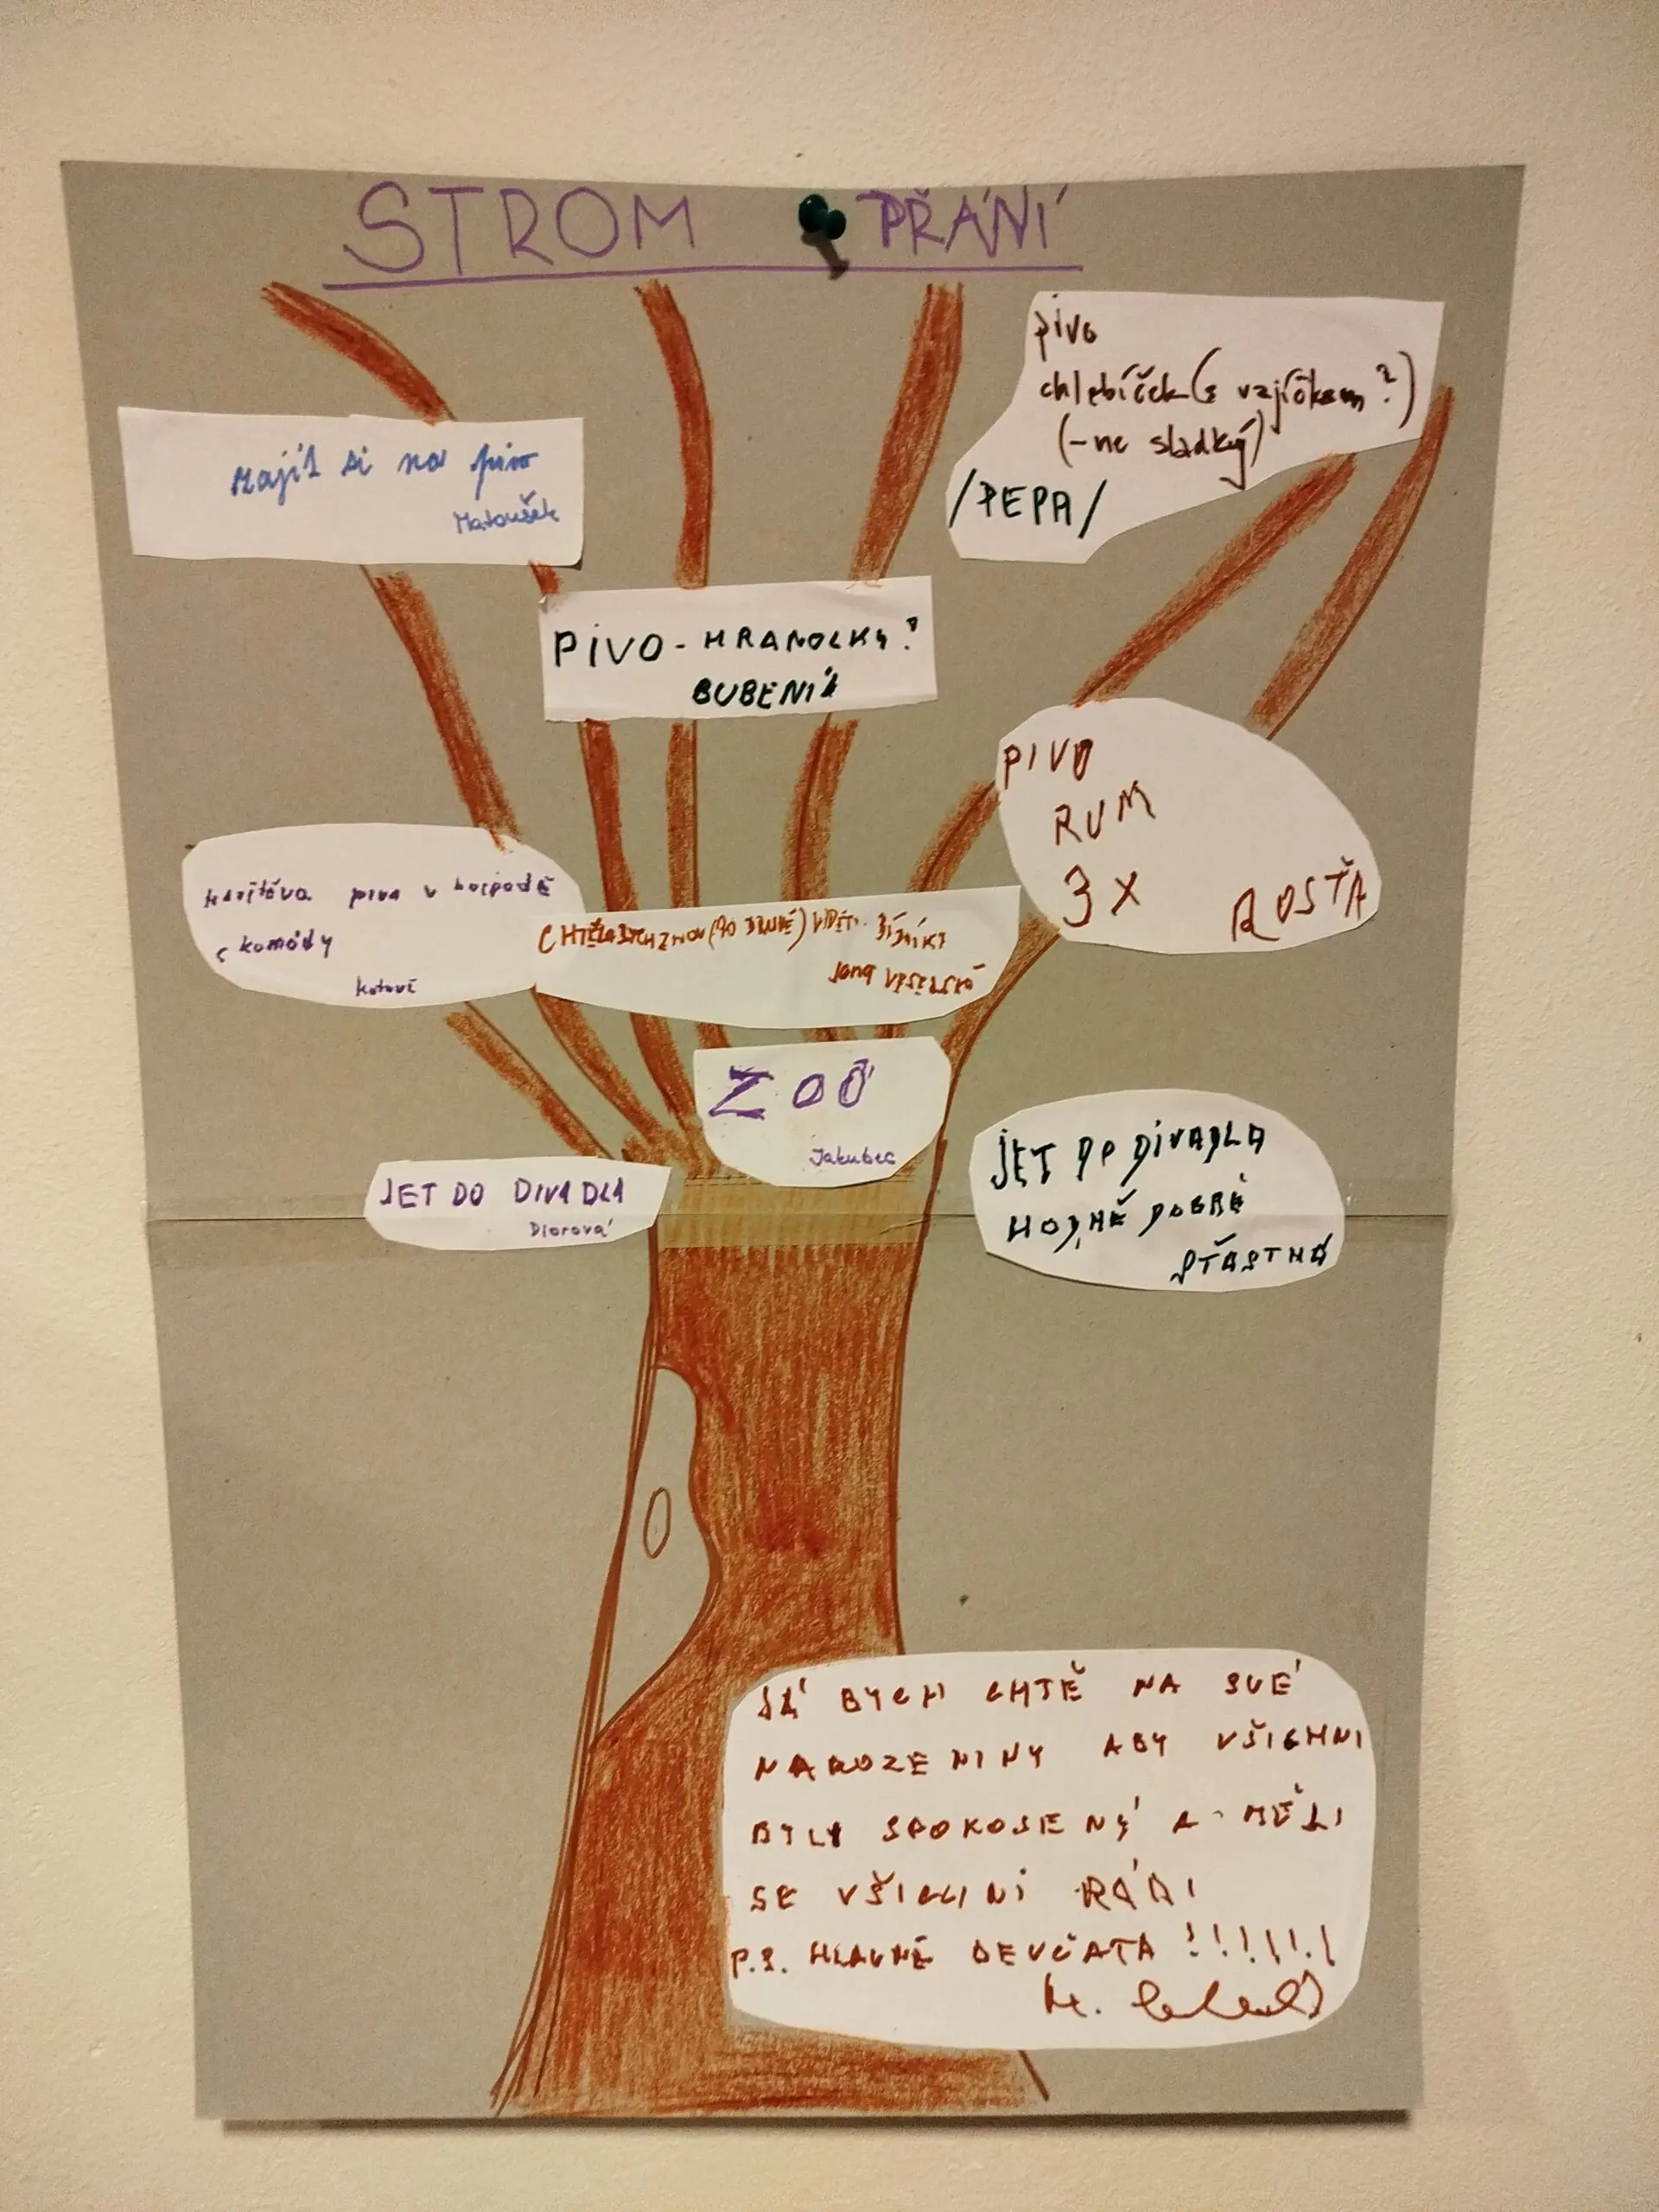 STROM PŘÁNÍ
pivo
chlebíček (s vajíčkem?)
(-ne sladký)
/PEPA/
zajít si na pivo
Matoušek
PIVO - HRANOLKY?
BUBENÍK
PIVO
RUM
3 X ROSŤA
piva v hospodě
s komódy
CHTĚLA BYCH ZNOV (PO DRUHÉ) VIDĚT
Jana VESELSKÁ
ZOŎ
Jakubec
JET DO DIVADLA
Diorová
JET DO DIVADLA
HODNĚ DOBRÉ
ŠŤASTNÁ
JÁ BYCH CHTĚ NA SVÉ
NAROZENINY ABY VŠICHNI
BYLY SPOKOJENÝ A MĚLI
SE VŠICHNI RÁDI
P.S. HLAVNĚ DEVČATA !!!!!!